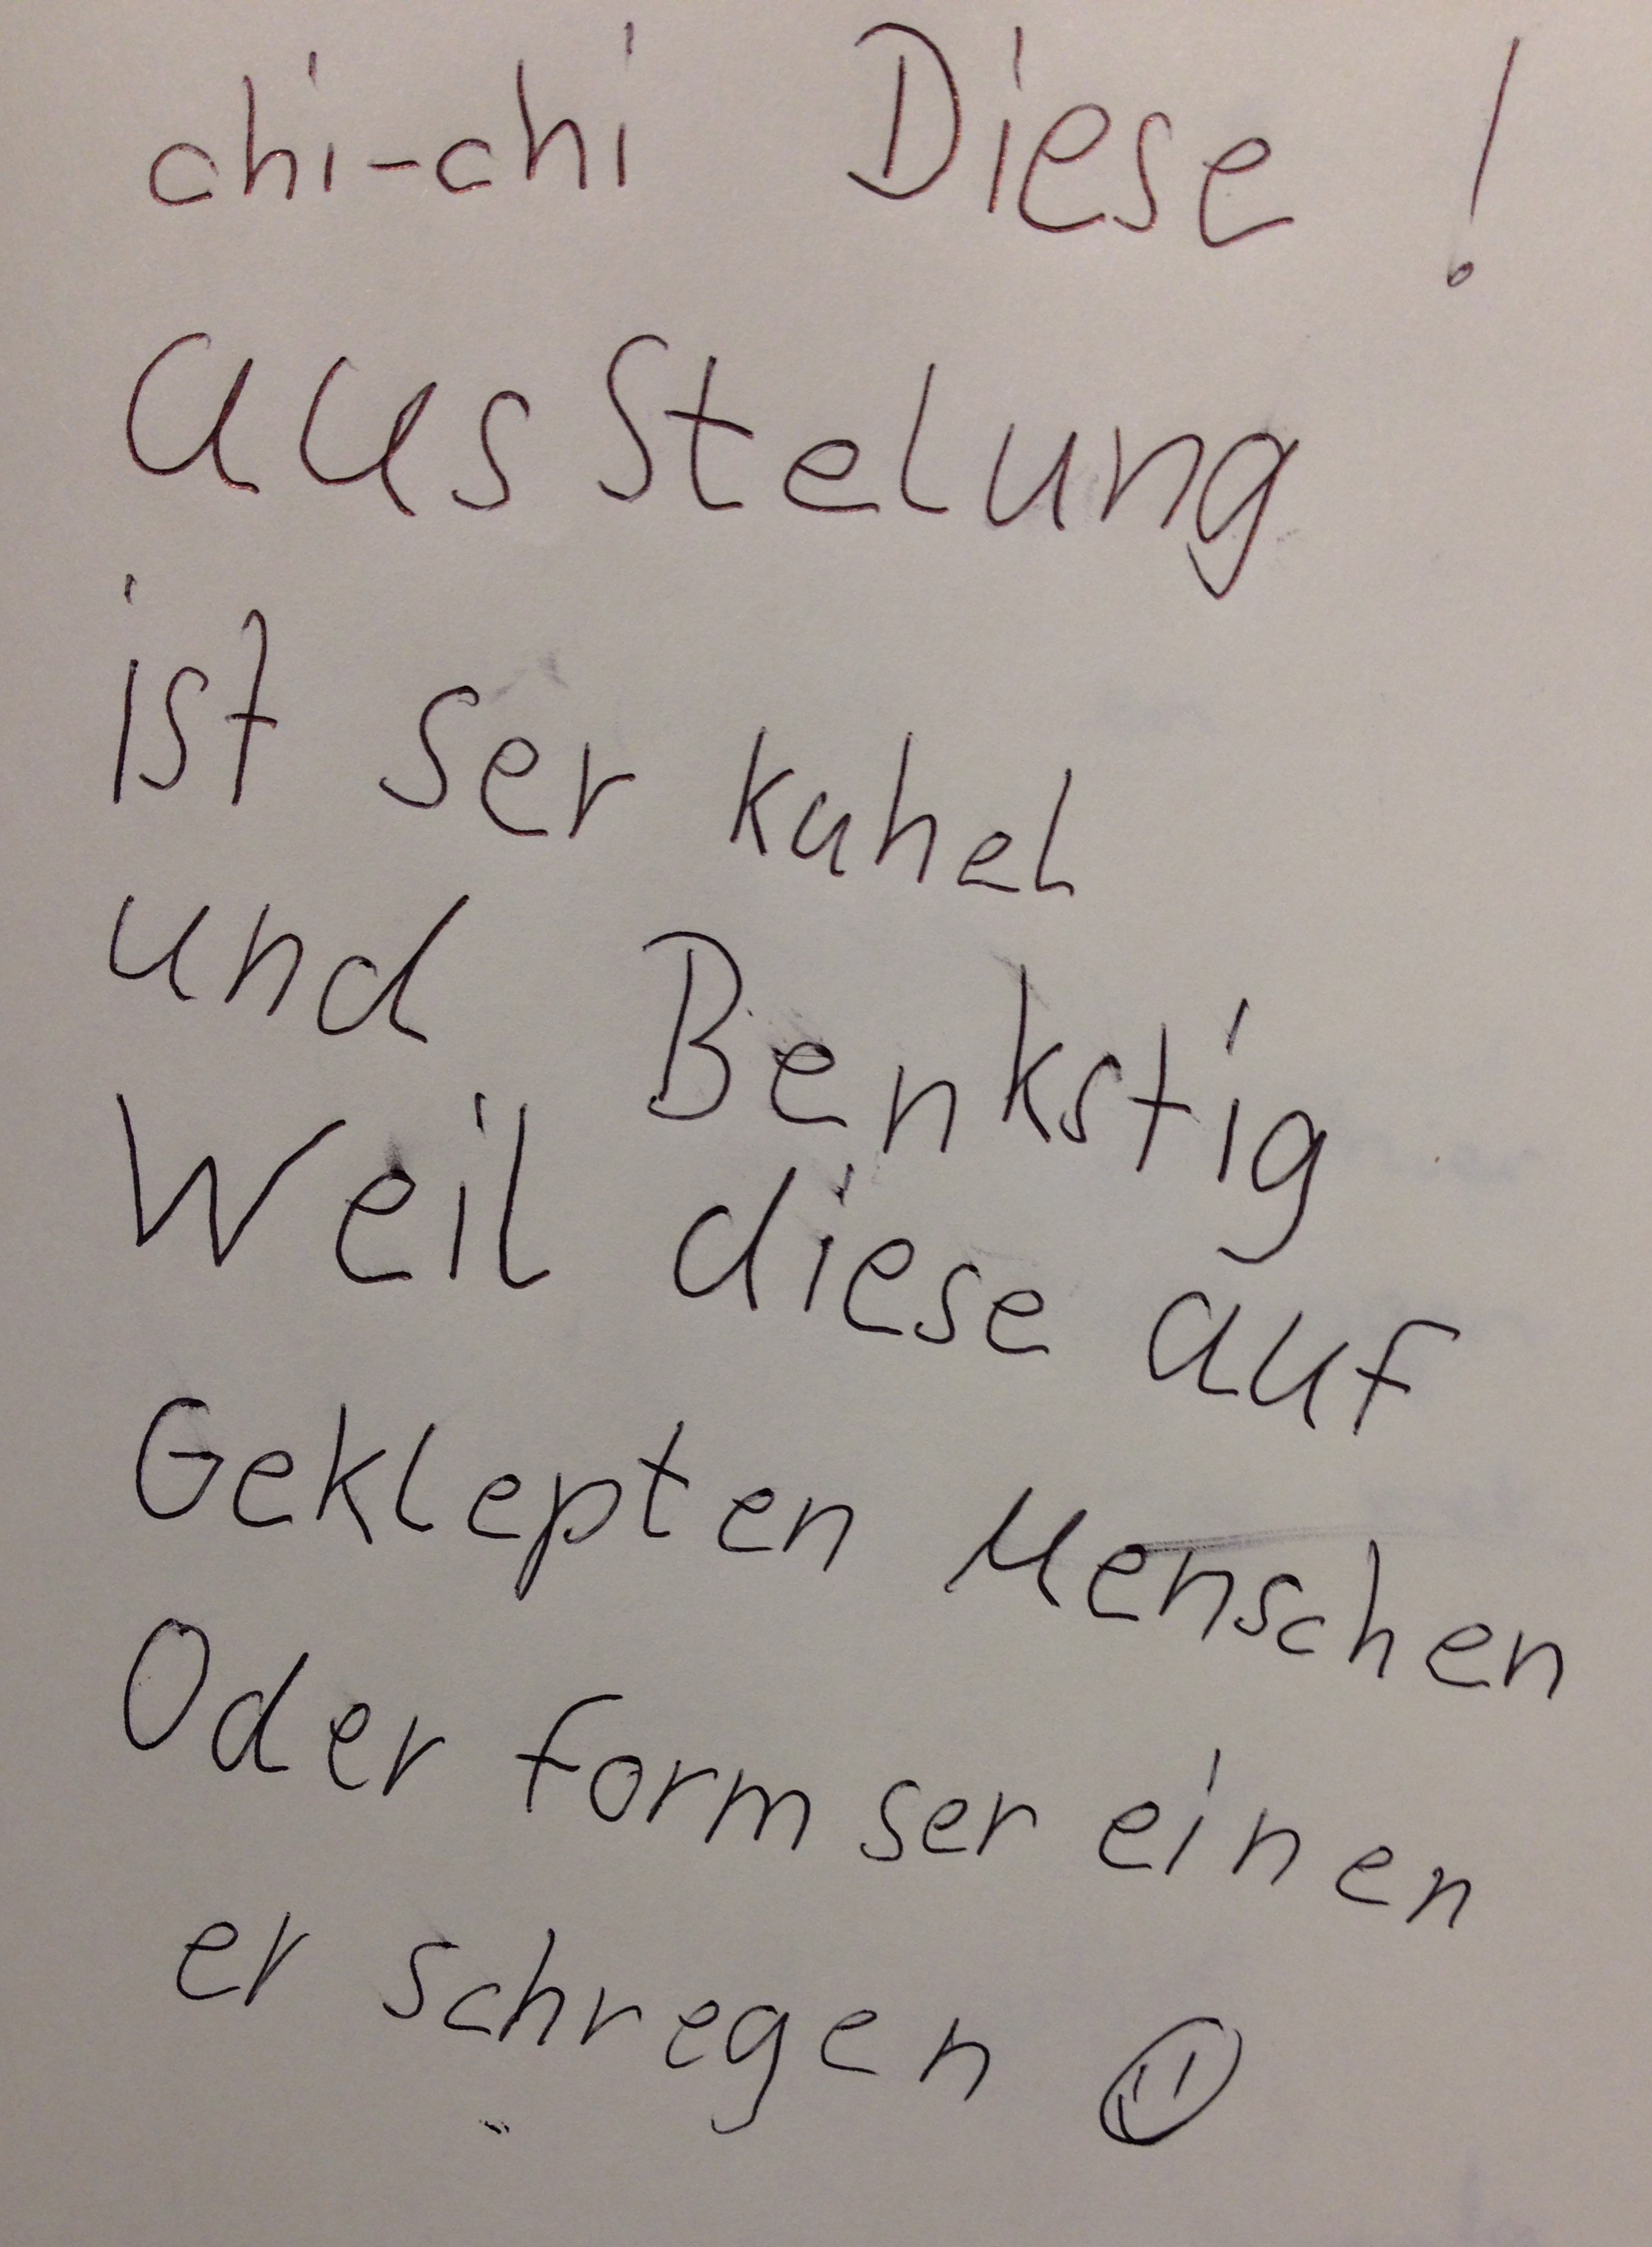 chi-chi Diese !
ausstelung
ist ser kuhel
und Benkstig
Weil diese auf
Geklepten Menschen
Oder form ser einen
er schregen